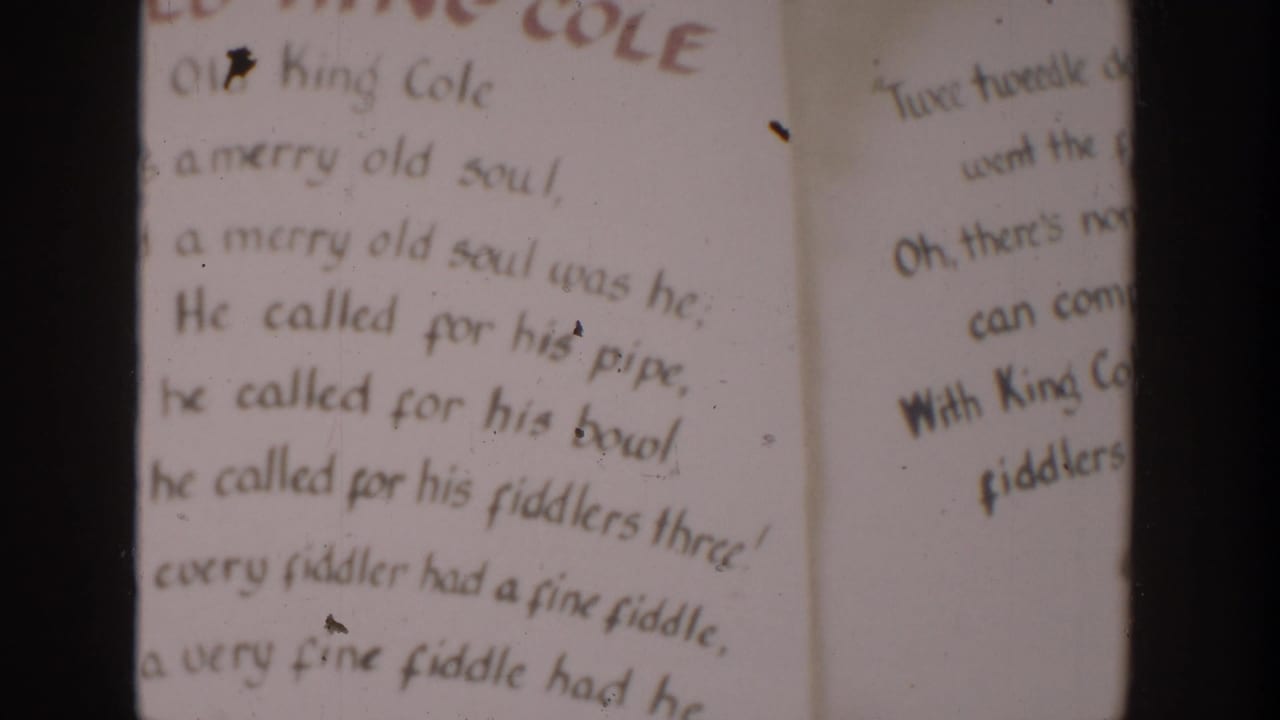 KING COLE
Old King Cole
a merry old soul,
a merry old soul was he;
He called for his pipe,
he called for his bowl
he called for his fiddlers three!
every fiddler had a fine fiddle,
a very fine fiddle had he
"Twee tweedle
went the
Oh, there's
can
With King
fiddlers